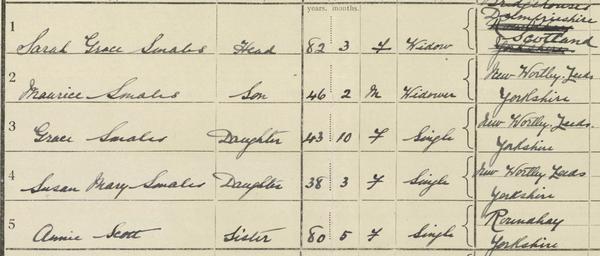 years. months.
Dumfriesshire
1 Scotland
Sarah Grace Smales Head 82 3 F Widow Yorkshire
2 New Wortley, Leeds
Maurice Smales Son 46 2 M Widower Yorkshire
3 New Wortley, Leeds.
Grace Smales Daughter 43 10 F Single Yorkshire
4 New Wortley Leeds
Susan Mary Smales Daughter 38 3 F Single Yorkshire
5 Roundhay
Annie Scott Sister 80 5 F Single Yorkshire